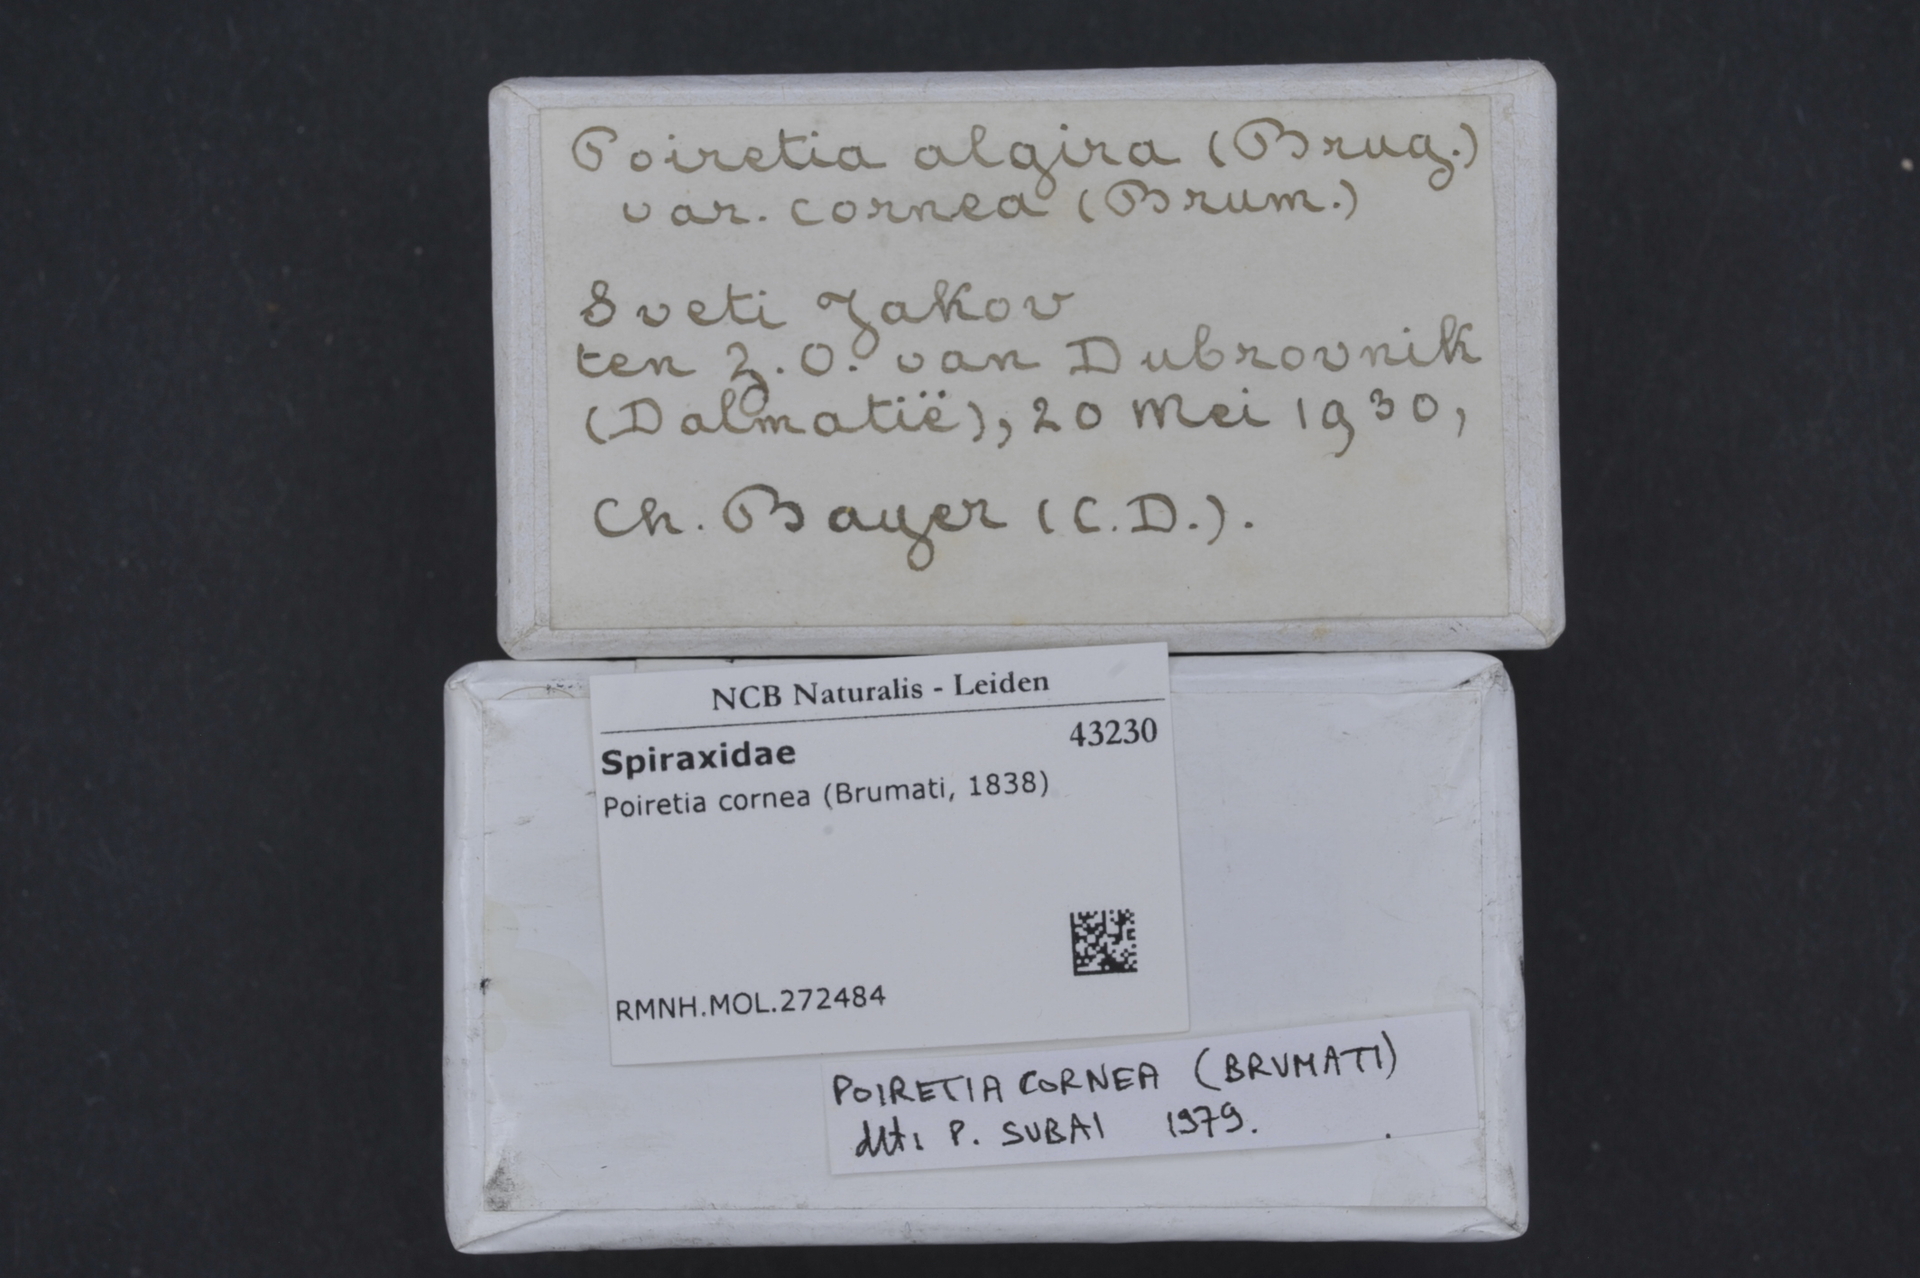 Poiretia algira (Brug.)
var. cornea (Brum.)
Sveti Jakov
ten Z.O. van Dubrovnik
(Dalmatië), 20 Mei 1930,
Ch. Bayer (C.D.).
NCB Naturalis - Leiden
43230
Spiraxidae
Poiretia cornea (Brumati, 1838)
RMNH.MOL.272484
POIRETIA CORNEA (BRUMATI)
det: P. SUBAI 1979.